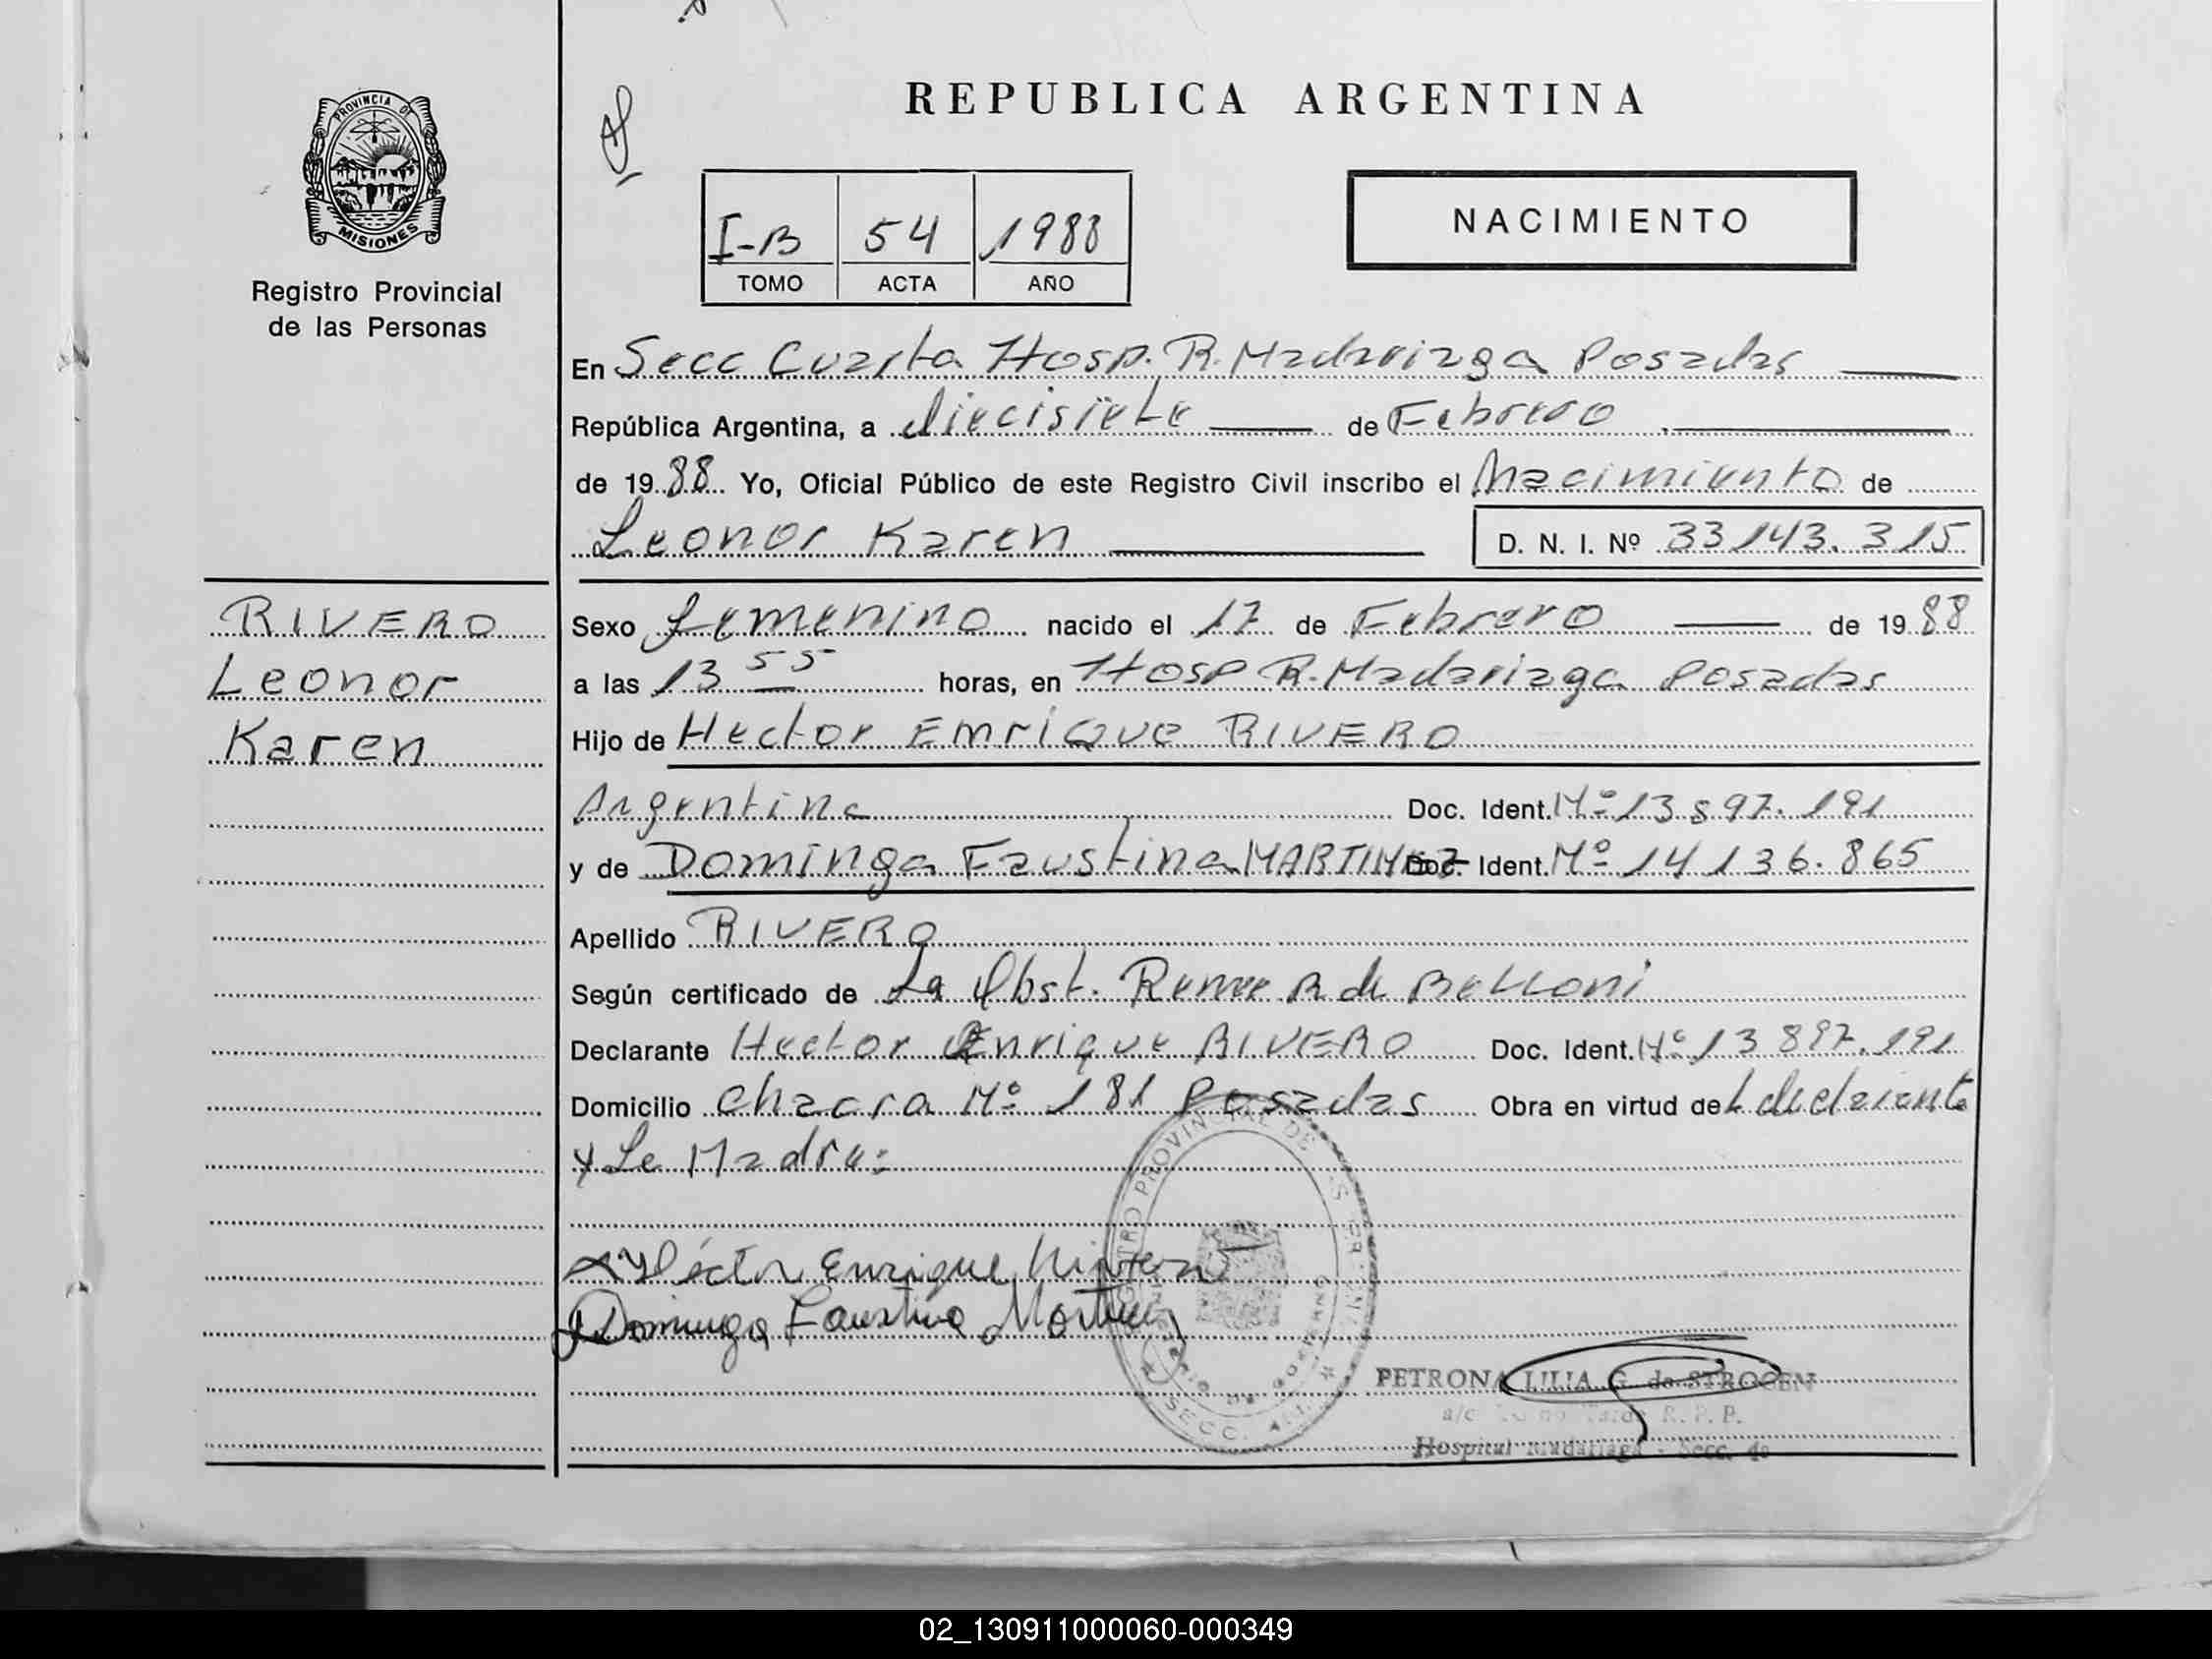 REPUBLICA ARGENTINA
PROVINCIA DE
MISIONES
Registro Provincial
de las Personas
I-B 54 1988
TOMO ACTA AÑO
NACIMIENTO
En Secc Cuarta Hosp. R. Madariaga Posadas
República Argentina, a diecisiete de Febrero
de 1988 Yo, Oficial Público de este Registro Civil inscribo el Nacimiento de
Leonor Karen D. N. I. Nº 33 143. 315
RIVERO
Leonor
Karen
Sexo femenino nacido el 17 de Febrero de 1988
a las 13 55 horas, en Hosp R. Madariaga Posadas
Hijo de Hector Emrique RIVERO
Argentina Doc. Ident. Nº 13 897. 191
y de Dominga Faustina MARTINEZ Doc. Ident. Nº 14 136. 865
Apellido RIVERO
Según certificado de La Obst. B de Belloni
Declarante Hector Enrique RIVERO Doc. Ident. Nº 13 897. 191
Domicilio Chacra Nº 181 Posadas Obra en virtud de
y La Madre:
Héctor Enrique
Dominga Faustina Martinez
REGISTRO PROVINCIAL DE LAS PERSONAS
SECC.
PETRONA LILIA G. de STROCEN
a/c R. P. P.
Hospital Madariaga - Secc. 4a
02_130911000060-000349